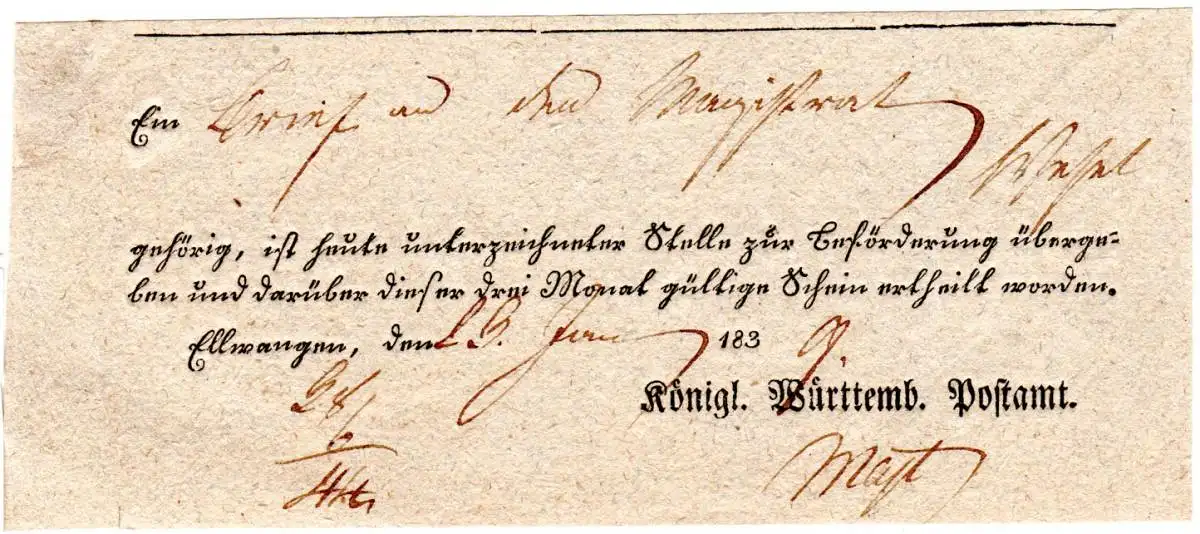 Ein Brief an den Magistrat
Wesel
gehörig, ist heute unterzeichneter Stelle zur Beförderung überge-
ben und darüber dieser drei Monat gültige Schein ertheilt worden.
Ellwangen, den 23. Jan 1839.
Königl. Württemb. Postamt.